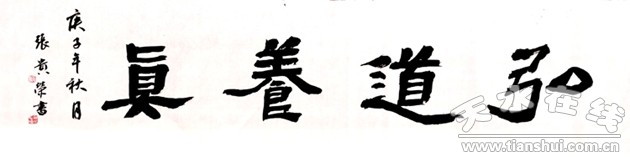 弘道養真
庚子年秋月
張貴榮書
天水在线
www.tianshui.com.cn